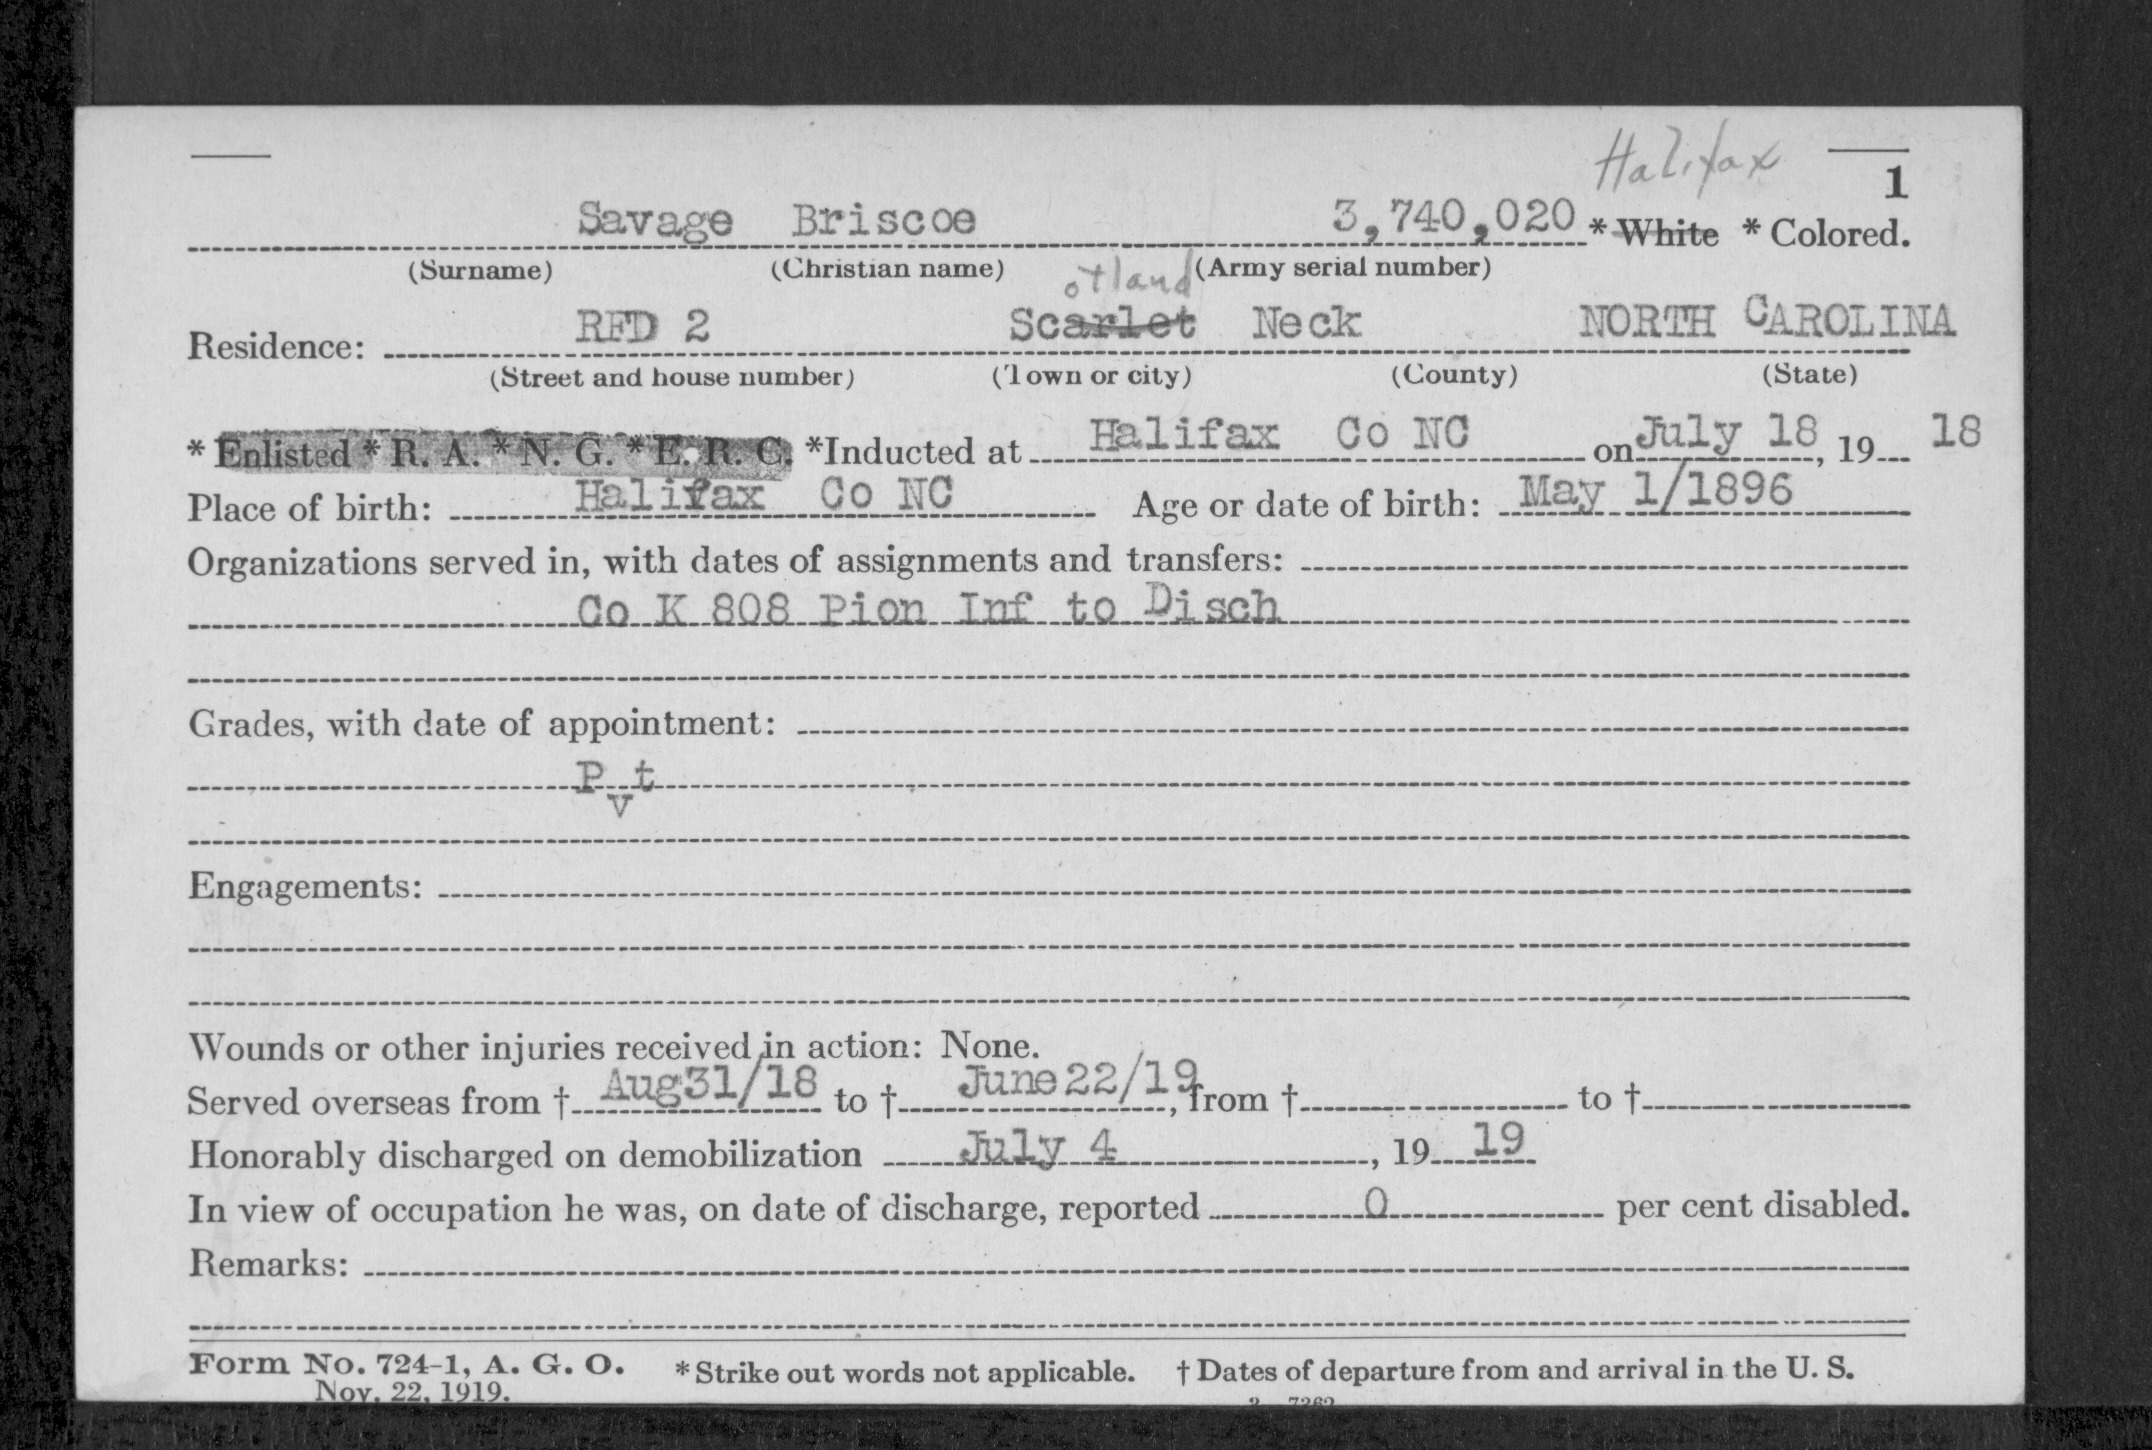 Halifax
1
Savage Briscoe 3,740,020 * White * Colored.
(Surname) (Christian name) (Army serial number)
otland
Residence: RFD 2 Scarlet Neck NORTH CAROLINA
(Street and house number) (Town or city) (County) (State)
* Enlisted * R. A. * N. G. * E. R. C. *Inducted at Halifax Co NC on July 18, 19 18
Place of birth: Halifax Co NC Age or date of birth: May 1/1896
Organizations served in, with dates of assignments and transfers:
Co K 808 Pion Inf to Disch
Grades, with date of appointment:
Pvt
Engagements:
Wounds or other injuries received in action: None.
Served overseas from † Aug 31/18 to † June 22/19, from † to †
Honorably discharged on demobilization July 4, 19 19
In view of occupation he was, on date of discharge, reported 0 per cent disabled.
Remarks:
Form No. 724-1, A. G. O. * Strike out words not applicable. † Dates of departure from and arrival in the U. S.
Nov. 22, 1919.